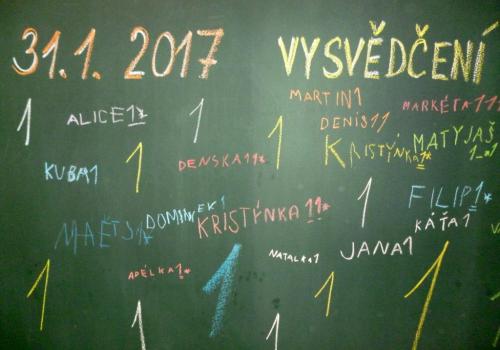 31.1. 2017 VYSVĚDČENÍ
MARTIN1
MARKÉTA 111
1 ALICE1* 1
DENIS11
1
KRISTÝNKA1*
MATYJAŠ
1-1
KUBA1 1 DENSKA11*
1 FILIP1*
DOMINEK1 KRISTÝNKA 11*
KÁŤA1
NATALKA1 JANA1
1 ADÉLKA1* 1 1 1
1 1